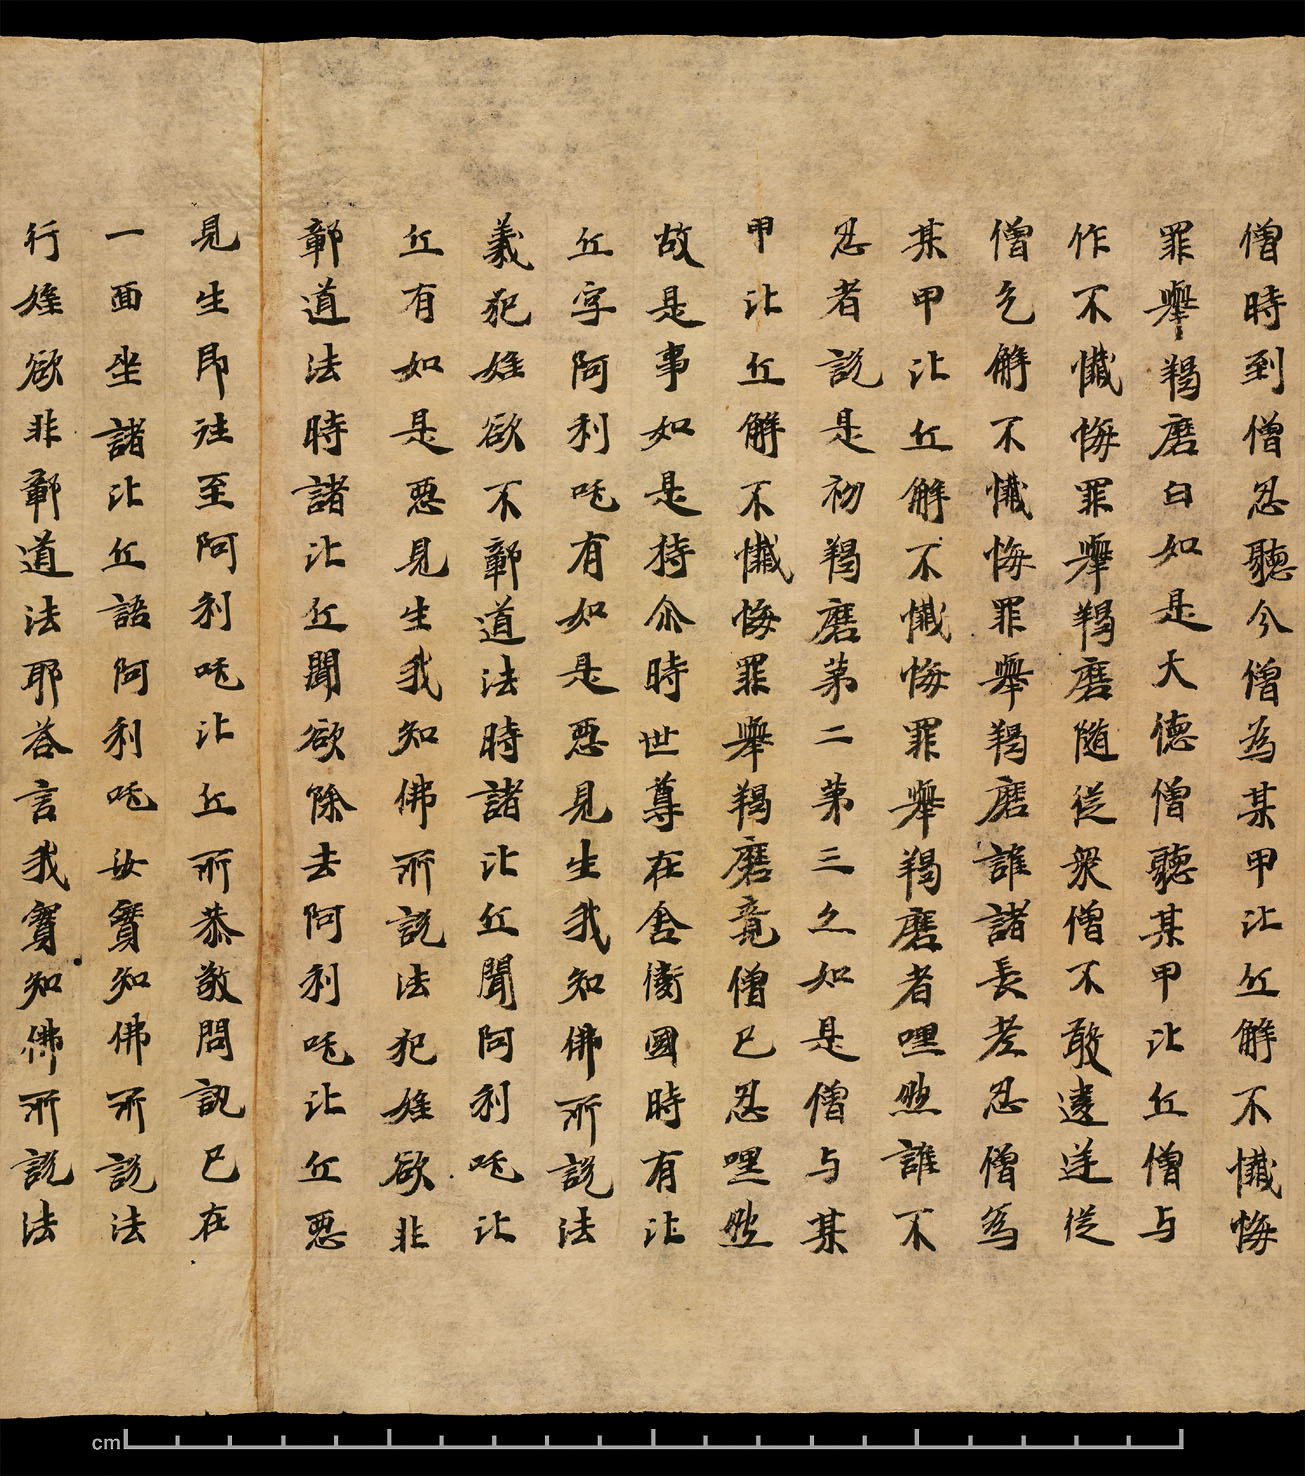 僧時到僧忍聽今僧為某甲比丘解不懺悔
罪舉羯磨白如是大德僧聽某甲比丘僧与
作不懺悔罪舉羯磨隨從衆僧不敢違逆從
僧乞解不懺悔罪舉羯磨誰諸長老忍僧為
某甲比丘解不懺悔罪舉羯磨者嘿然誰不
忍者說是初羯磨第二第三么如是僧与某
甲比丘解不懺悔罪舉羯磨竟僧已忍嘿然
故是事如是持尒時世尊在舍衛國時有比
丘字阿利吒有如是惡見生我知佛所說法
義犯婬欲不鄣道法時諸比丘聞阿利吒比
丘有如是惡見生我知佛所說法犯婬欲非
鄣道法時諸比丘聞欲除去阿利吒比丘惡
見生即往至阿利吒比丘所恭敬問訊已在
一面坐諸比丘語阿利吒汝實知佛所說法
行婬欲非鄣道法耶荅言我實知佛所說法
cm